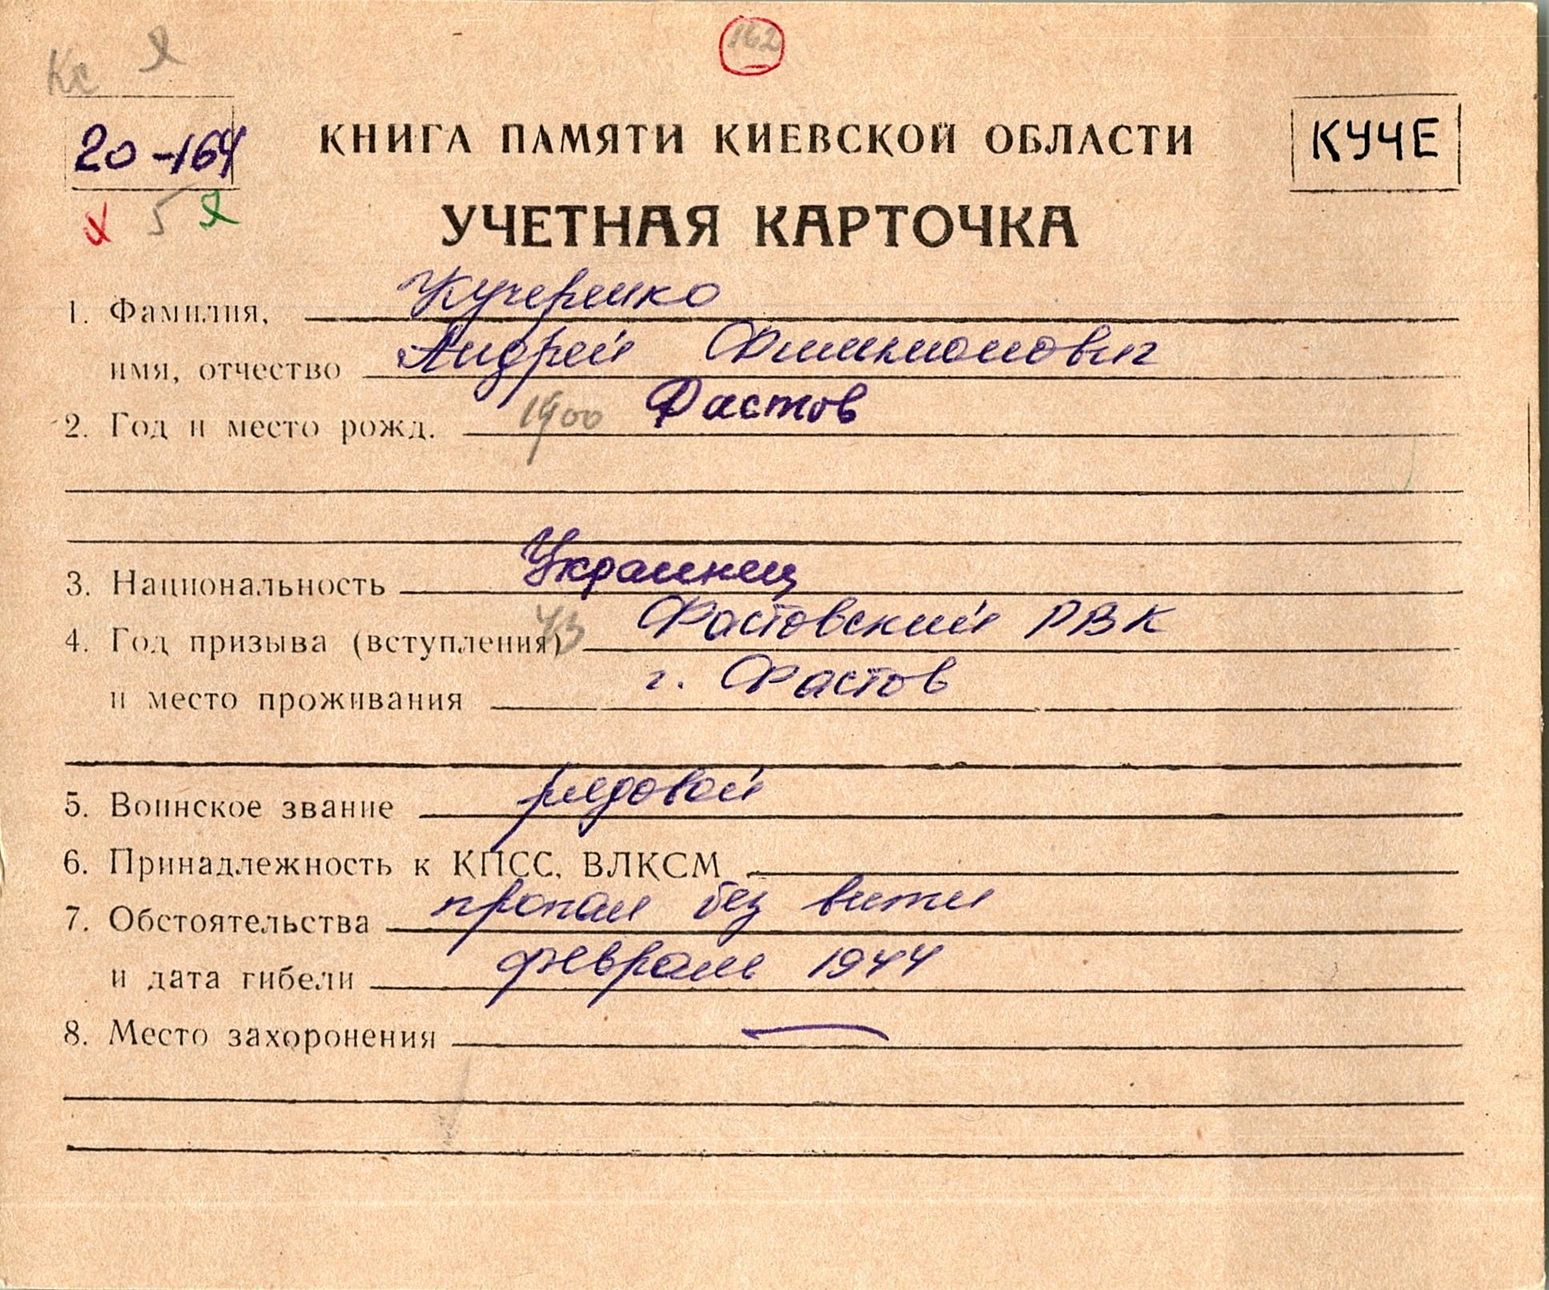 162
Кс
20-164
КНИГА ПАМЯТИ КИЕВСКОЙ ОБЛАСТИ
КУЧЕ
5
УЧЕТНАЯ КАРТОЧКА
1. Фамилия, Кучеренко
имя, отчество Андрей Филимонович
2. Год и место рожд. 1900 Фастов
3. Национальность Украинец
4. Год призыва (вступления) 43 Фастовский РВК
и место проживания г. Фастов
5. Воинское звание рядовой
6. Принадлежность к КПСС, ВЛКСМ
7. Обстоятельства пропал без вести
и дата гибели февраль 1944
8. Место захоронения —